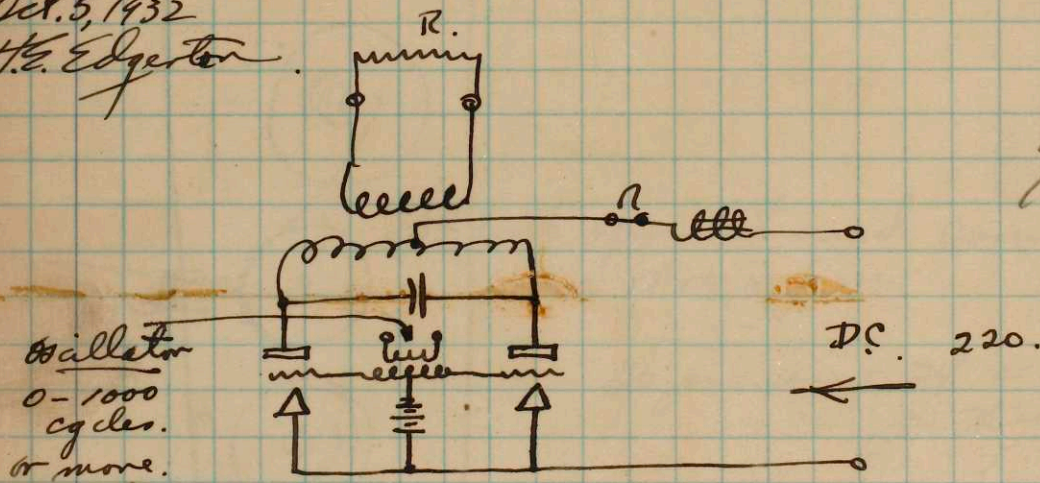 Oct. 5, 1932
H.E. Edgerton.
R.
D.C. 220.
oscillator
0-1000
cycles.
or more.